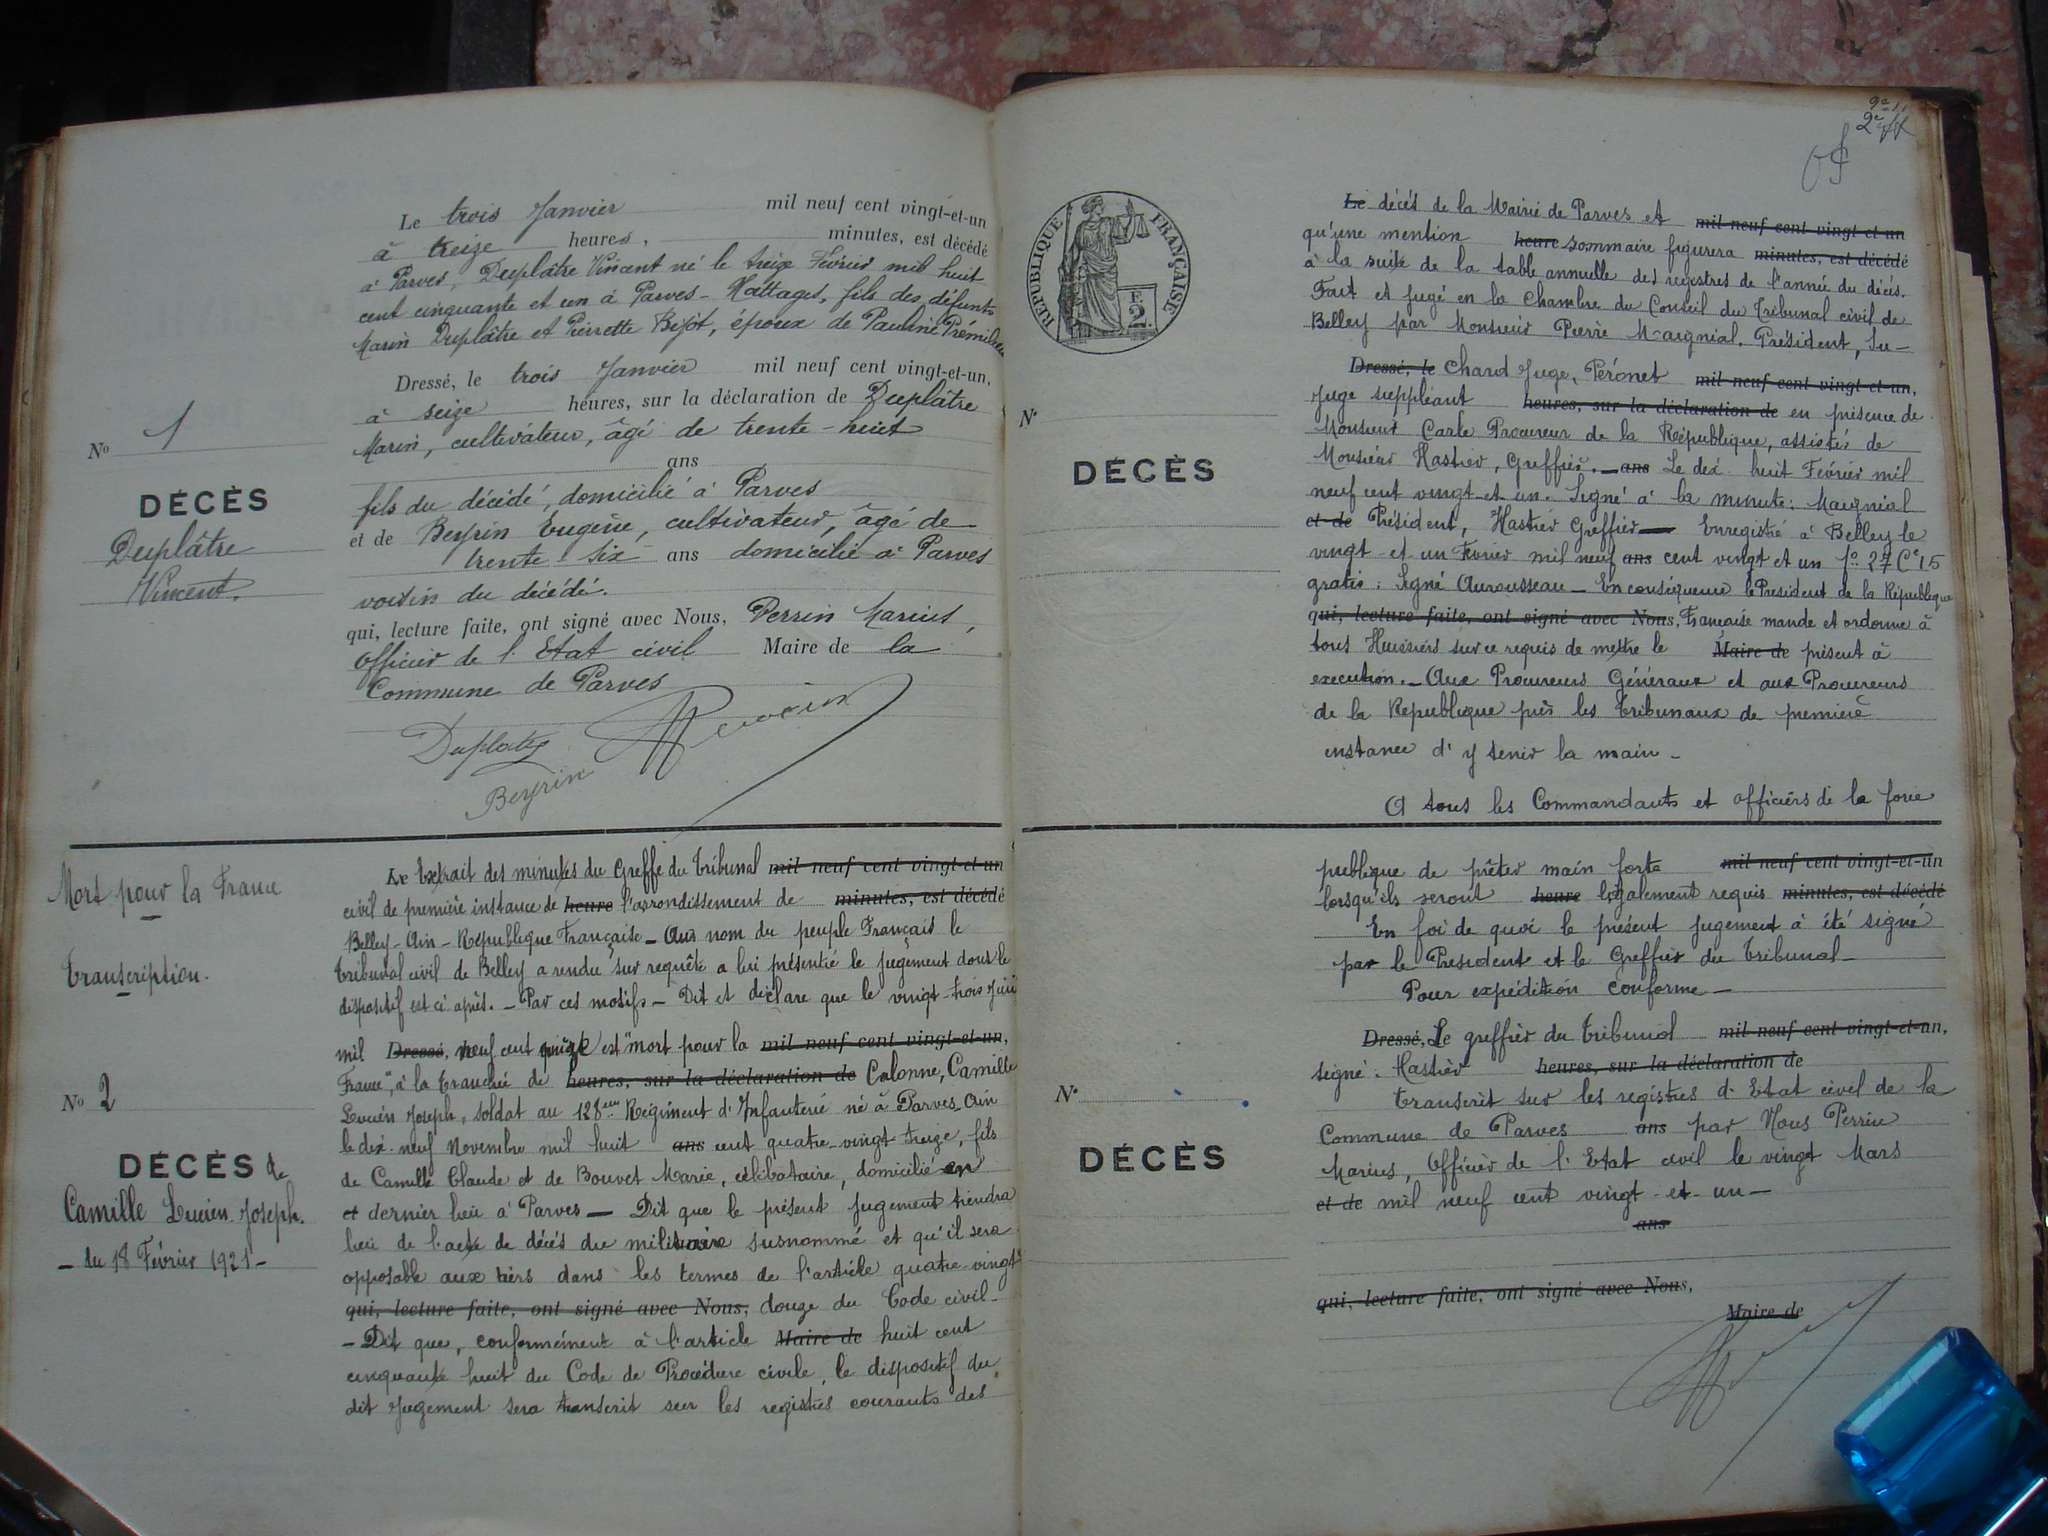 Le trois Janvier mil neuf cent vingt-et-un
à treize heures, minutes, est décédé
à Parves, Duplâtre Vincent né le treize Février mil huit
cent cinquante et un à Parves - Nattages, fils des défunts
Marin Duplâtre et Pierrette Bizot, époux de Pauline Prémillieu
Dressé, le trois Janvier mil neuf cent vingt-et-un,
à seize heures, sur la déclaration de Duplâtre
Marin, cultivateur, âgé de trente-huit
ans
fils du décédé, domicilié à Parves
et de Beyrin Eugène, cultivateur, âgé de
trente six ans domicilié à Parves
voisin du décédé.
qui, lecture faite, ont signé avec Nous, Perrin Marius,
Officier de l'Etat civil Maire de la
Commune de Parves
Duplatre Perrin
Beyrin
No 1
DÉCÈS
Duplâtre
Vincent.
Mort pour la France
Transcription.
No 2
DÉCÈS de
Camille Lucien Joseph.
- du 18 Février 1921 -
Le Extrait des minutes du Greffe du Tribunal mil neuf cent vingt-et-un
civil de première instance de heure l'arrondissement de minutes, est décédé
Belley - Ain - République Française - Au nom du peuple Français le
Tribunal civil de Belley a rendu sur requête a lui présentée le jugement dont le
dispositif est ci après. - Par ces motifs - Dit et déclare que le vingt-trois Juin
mil Dressé, neuf cent quinze est "mort pour la mil neuf cent vingt-et-un,
France", à la tranchée de heures, sur la déclaration de Calonne, Camille
Lucien Joseph, soldat au 128eme Régiment d'Infanterie né à Parves Ain
le dix-neuf Novembre mil huit ans cent quatre-vingt-treize, fils
de Camille Claude et de Bouvet Marie, célibataire, domicilié en
et dernier lieu à Parves - Dit que le présent jugement tiendra
lieu de l'acte de décès du militaire susnommé et qu'il sera
opposable aux tiers dans les termes de l'article quatre-vingt
qui, lecture faite, ont signé avec Nous, douze du Code civil -
- Dit que, conformément à l'article Maire de huit cent
cinquante huit du Code de Procédure civile, le dispositif du
dit Jugement sera transcrit sur les registres courants des
RÉPUBLIQUE FRANÇAISE
F.
2.
Le décès de la Mairie de Parves et mil neuf cent vingt-et-un
qu'une mention heure sommaire figurera minutes, est décédé
à la suite de la table annuelle des registres de l'année du décès.
Fait et jugé en la Chambre du Conseil du Tribunal civil de
Belley par Monsieur Pierre Maignial, Président, Su-
Dressé, le chard Juge, Péronet mil neuf cent vingt-et-un,
Juge suppléant heures, sur la déclaration de en présence de
Monsieur Carle Procureur de la République, assistés de
Monsieur Hastier, Greffier. - ans Le dix huit Février mil
neuf cent vingt-et-un. Signé à la minute : Maignial
et de Président, Hastier Greffier - Enregistré à Belley le
vingt-et un Fevrier mil neuf ans cent vingt et un fo 27 Ce 15
gratis : Signé Aurousseau - En conséquence le Président de la République
qui, lecture faite, ont signé avec Nous, Française mande et ordonne à
tous Huissiers sur ce requis de mettre le Maire de présent à
execution. - Aux Procureurs Généraux et aux Procureurs
de la République près les Tribunaux de première
instance d'y tenir la main -
A tous les Commandants et officiers de la force
N°
DÉCÈS
publique de prêter main forte mil neuf cent vingt-et-un
lorsqu'ils seront heure légalement requis minutes, est décédé
En foi de quoi le présent jugement à été signé
par le President et le Greffier du Tribunal -
Pour expédition conforme -
Dressé, Le greffier du Tribunal mil neuf cent vingt-et-un,
signé : Hastier heures, sur la déclaration de
Transcrit sur les registres d'Etat civil de la
Commune de Parves ans par Nous Perrin
Marius, Officier de l'Etat civil le vingt Mars
et de mil neuf cent vingt-et-un -
ans
qui, lecture faite, ont signé avec Nous,
Maire de
N°
DÉCÈS